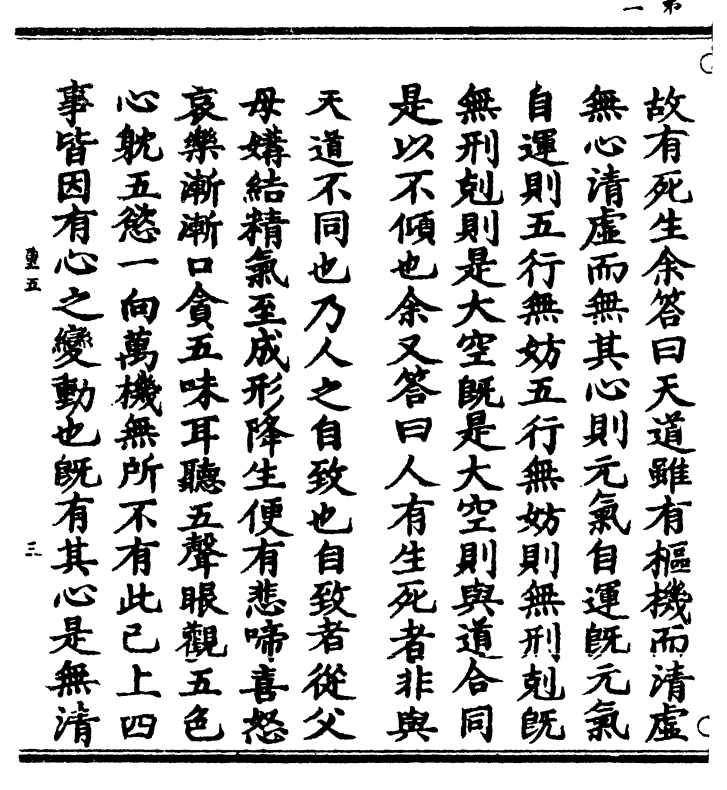 故有死生余答曰天道雖有樞機而清虛
無心清虛而無其心則元氣自運既元氣
自運則五行無妨五行無妨則無刑剋既
無刑剋則是大空既是大空則與道合同
是以不傾也余又答曰人有生死者非與
天道不同也乃人之自致也自致者從父
母媾結精氣至成形降生便有悲啼喜怒
哀樂漸漸口貪五味耳聽五聲眼觀五色
心躭五慾一向萬機無所不有此已上四
事皆因有心之變動也既有其心是無清
三